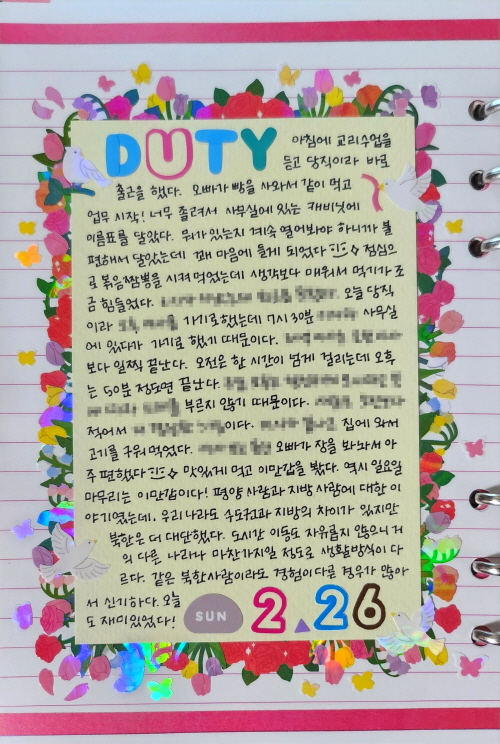 DUTY
아침에 교리수업을
듣고 당직이라 바로
출근을 했다. 오빠가 빵을 사와서 같이 먹고
업무 시작! 너무 졸려서 사무실에 있는 캐비닛에
이름표를 달았다. 뭐가 있는지 계속 열어봐야 하니가 불
편해서 달았는데 꽤 마음에 들게 되었다 점심으
로 볶음짬뽕을 시켜 먹었는데 생각보다 매워서 먹기가 조
금 힘들었다. 오늘 당직
이라 가기로했는데 7시 30분 사무실
에 있다가 가기로 했기 때문이다.
보다 일찍 끝난다. 오전은 한 시간이 넘게 걸리는데 오후
는 50분 정도면 끝난다.
부르지 않기 때문이다.
적어서 이다. 집에 와서
고기를 구워 먹었다. 오빠가 장을 봐놔서 아
주 편했다 맛있게 먹고 이만갑을 봤다. 역시 일요일
마무리는 이만갑이다! 평양 사람과 지방 사람에 대한 이
야기였는데, 우리나라도 수도권과 지방의 차이가 있지만
북한은 더 대단했다. 도시간 이동도 자유롭지 않으니 거
의 다른 나라나 마찬가지일 정도로 생활방식이 다
르다. 같은 북한사람이라도 경험이 다른 경우가 많아
서 신기하다. 오늘
도 재미있었다!
SUN 2.26